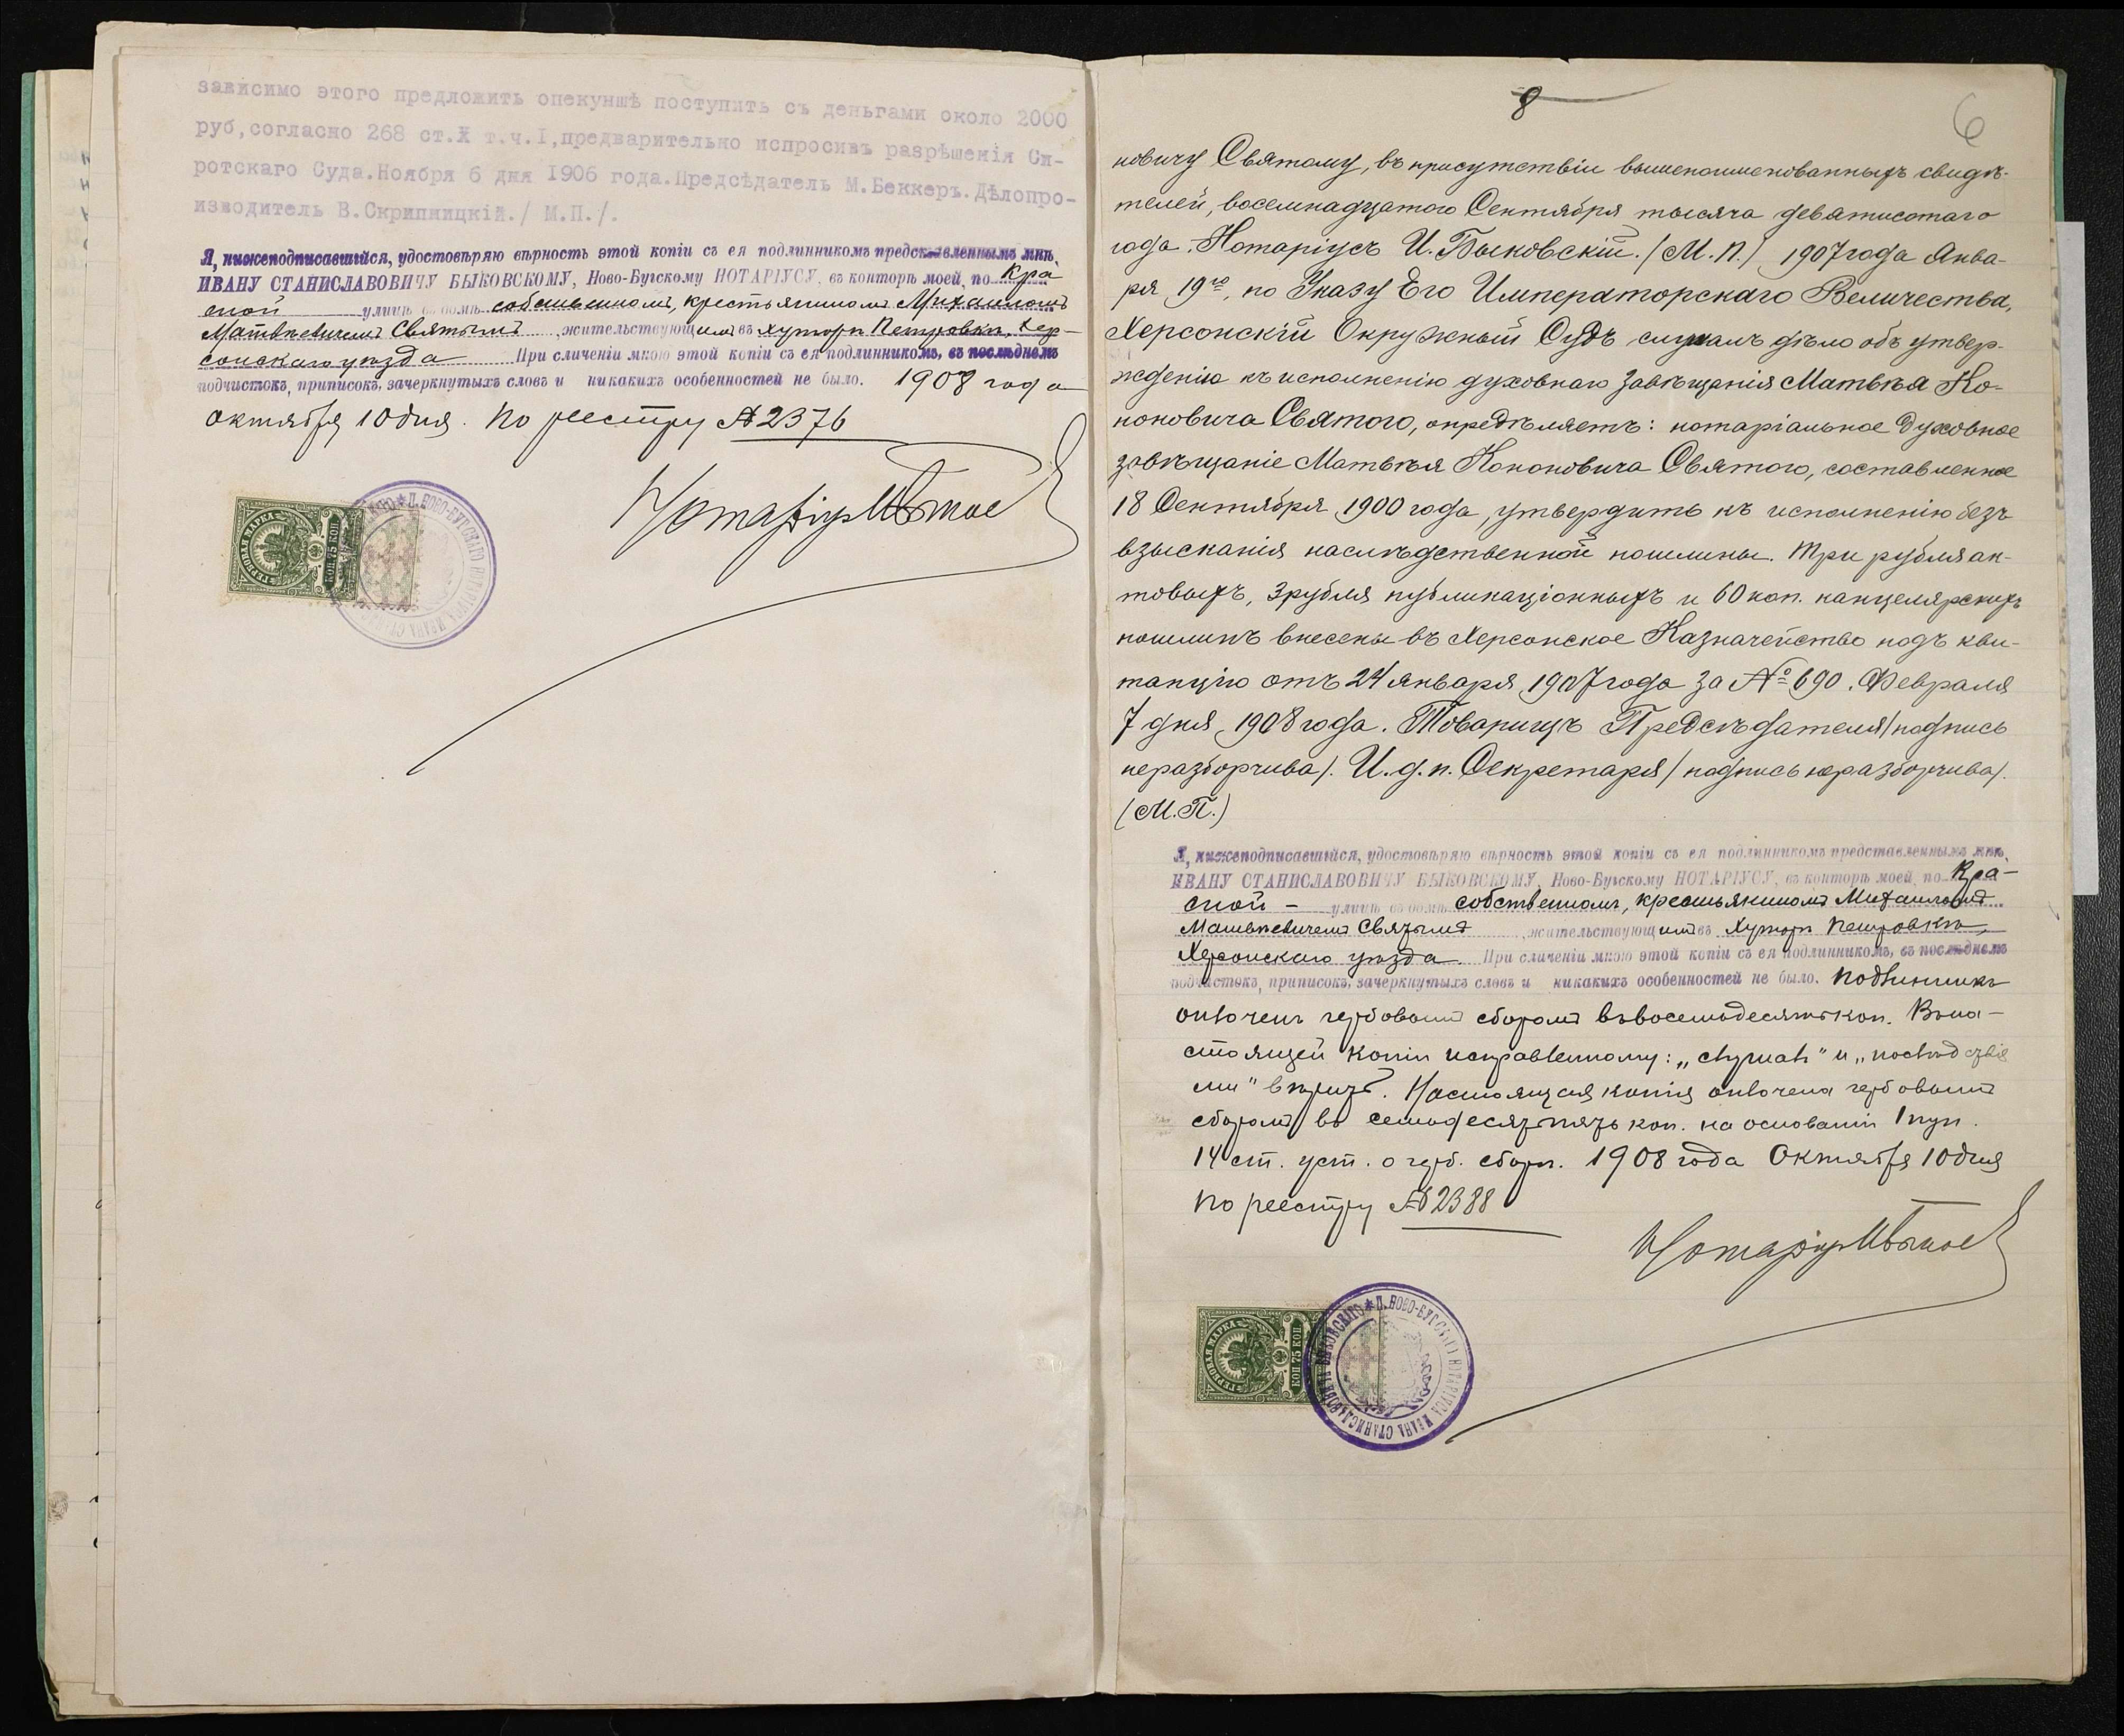 зависимо этого предложить опекуншѣ поступить съ деньгами около 2000
руб,согласно 268 ст.X т.ч.I,предварительно испросивъ разрѣшенія Си-
ротскаго Суда.Ноября 6 дня 1906 года.Предсѣдатель М.Беккеръ.Дѣлопро-
изводитель В.Скрипницкій./ М.П./.
Я, нижеподписавшійся, удостовѣряю вѣрность этой копіи съ ея подлинникомъ представленнымъ мнѣ,
ИВАНУ СТАНИСЛАВОВИЧУ БЫКОВСКОМУ, Ново-Бугскому НОТАРІУСУ, въ конторѣ моей, по Кра
сной улицѣ въ домѣ собственномъ, крестьяниномъ Михаиломъ
Матвѣевичемъ Святымъ жительствующимъ въ хуторѣ Петровкѣ, Хер-
сонскаго уѣзда При сличеніи мною этой копіи съ ея подлинникомъ, въ послѣднемъ
подчистокъ, приписокъ, зачеркнутыхъ словъ и никакихъ особенностей не было. 1908 года
октября 10 дня. По реестру №2376
Нотаріусъ
ГЕРБОВАЯ МАРКА
КОП 75 КОП
8
6
новичу Святому, въ присутствіи вышепоименованныхъ свидѣ-
телей, восемнадцатого Сентября тысяча девятисотаго
года. Нотаріусъ И. Быковскій. (М.П.) 1907 года Янва-
ря 19го, по Указу Его Императорскаго Величества,
Херсонскій Окружный Судъ слушалъ дѣло объ утвер-
жденіи къ исполненію духовнаго завѣщанія Матвѣя Ко-
ноновича Святого, опредѣляетъ: нотаріальное духовное
завѣщаніе Матвѣя Кононовича Святого, составленное
18 Сентября 1900 года, утвердить къ исполненію безъ
взысканія наслѣдственной пошлины. Три рубля ак-
товыхъ, 3 рубля публикаціонныхъ и 60 коп. канцелярскихъ
пошлинъ внесены въ Херсонское Казначейство подъ кви-
танцію отъ 24 января 1907 года за № 690. Февраля
7 дня 1908 года. Товарищъ Предсѣдателя /подпись
неразборчива/. И.д.п. Секретаря /подпись неразборчива/.
(М.П.)
Я, нижеподписавшійся, удостовѣряю вѣрность этой копіи съ ея подлинникомъ представленнымъ мнѣ,
ИВАНУ СТАНИСЛАВОВИЧУ БЫКОВСКОМУ, Ново-Бугскому НОТАРІУСУ, въ конторѣ моей, по Кра-
сной - улицѣ въ домѣ собственномъ, крестьяниномъ Михаиломъ
Матвѣевичемъ Святымъ жительствующимъ въ хуторѣ Петровкѣ,
Херсонскаго уѣзда. При сличеніи мною этой копіи съ ея подлинникомъ, въ послѣднемъ
подчистокъ, приписокъ, зачеркнутыхъ словъ и никакихъ особенностей не было. Подлинникъ
оплоченъ гербовымъ сборомъ въ восемьдесятъ коп. Въ на-
стоящей копіи исправленному: „слушалъ" и
ми" вѣрить. Настоящая копія оплочена гербовымъ
сборомъ въ семьдесятъ пять коп. на основаніи 1 пун.
14 ст. уст. о герб. сборѣ. 1908 года Октября 10 дня
По реестру №2388
Нотаріусъ
ГЕРБОВАЯ МАРКА
КОП 75 КОП
П. НОВО-БУГСКАГО НОТАРІУСА ИВАНА СТАНИСЛАВОВИЧА БЫКОВСКАГО